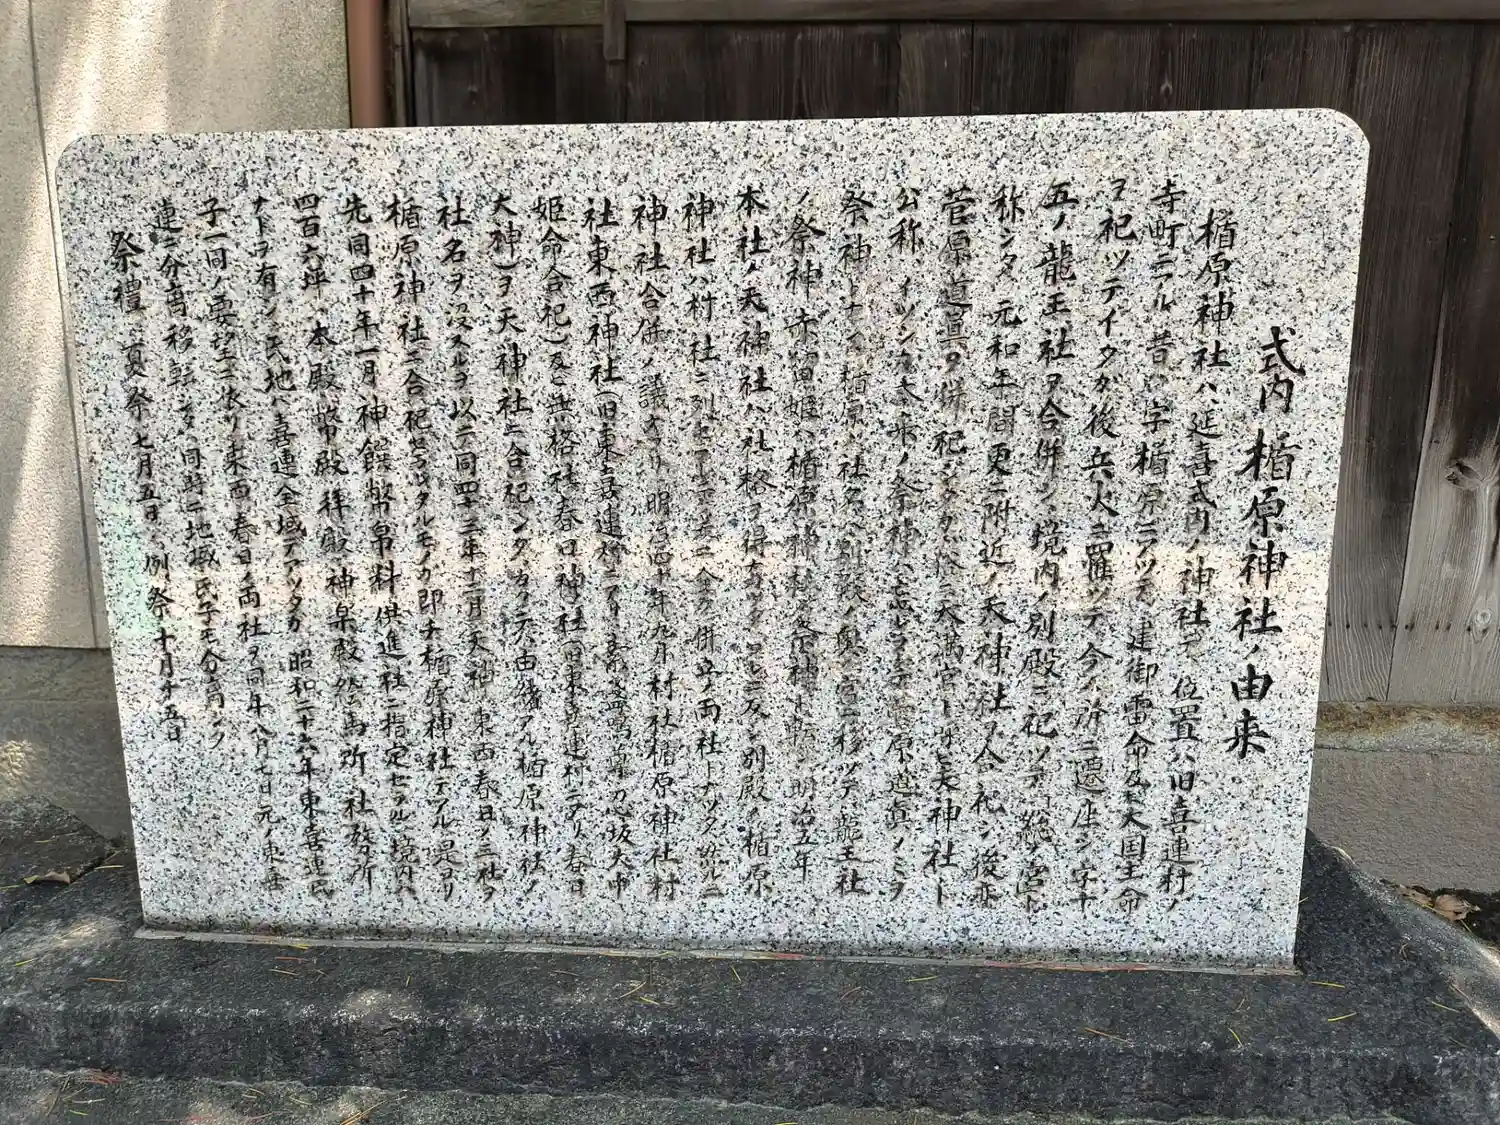 式内 楯原神社ノ由来
楯原神社ハ延喜式内ノ神社デ 位置ハ旧喜連村ノ
寺町ニアル 昔ハ字楯原ニアツテ 建御雷命及大国主命
ヲ祀ツテイタガ後兵火ニ罹ツテ今ノ所ニ遷座シ字十
五ノ龍王社ヲ合併シ 境内ノ別殿ニ祀ツテ 総ノ宮ト
称シタ 元和年間更ニ附近ノ天神社ヲ合祀シ 後亦
菅原道真ヲ併祀シタガ 大満宮ト 天神社ト
公称 イツシカ本来ノ祭神ハ 原道真ノミヲ
祭神トナス 楯原ノ社名ハ別殿ノ奥ノ宮ニ移ツテ 龍王社
ノ祭神赤留姫ハ楯原神社ノ祭神ト転シ 明治五年
本社ノ天神社ハ社格ヲ得 別殿ノ楯原
神社ハ村社ニ列セラレテ 併立ノ両社トナツタ 然ルニ
神社合併ノ議アリ 明治四十年九月村社楯原神社村
社東西神社(旧東喜連村ニアリ 素盞嗚尊 忍坂大中
姫命合祀)及ビ無格社春日神社(旧東喜連村ニアリ 春日
大神)ヲ天神社ニ合祀シタガ 由緒アル楯原神社ノ
社名ヲ没スルヲ以テ同四十三年十二月天神 東西春日ノ三社ヲ
楯原神社ニ合祀 タルモノガ即チ楯原神社デアル 是ヨリ
先同四十年一月神饌幣帛料供進社ニ指定セラル 境内ハ
四百六坪 本殿 幣殿 拝殿 神楽殿 絵馬所 社務所
ナドヲ有シ氏地ハ喜連全域デアツタガ 昭和二十六年東喜連氏
子一同ノ要望ニ依リ東西春日ノ両社ヲ同年八月七日元ノ東喜
連ニ分離移転ス 同時ニ地域氏子モ分離シタ
祭禮 夏祭七月五日 例祭十月十五日